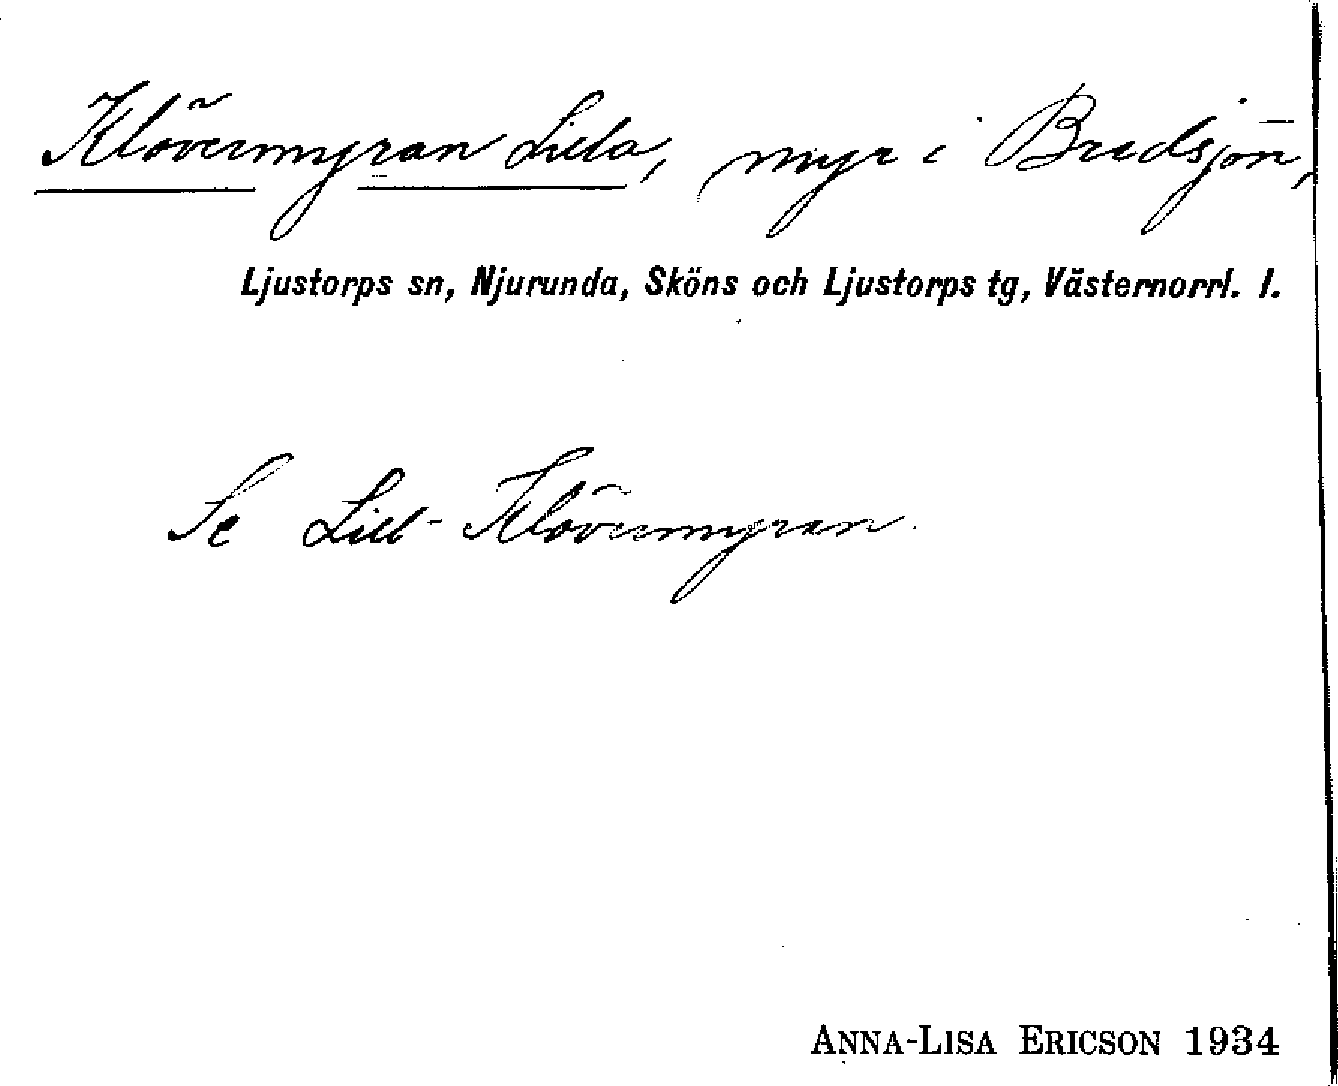 Klövermyran Lilla, myr i Bredsjön,
Ljustorps sn, Njurunda, Sköns och Ljustorps tg, Västernorrl. l.
Se Lill-Klövermyran.
ANNA-LISA ERICSON 1934